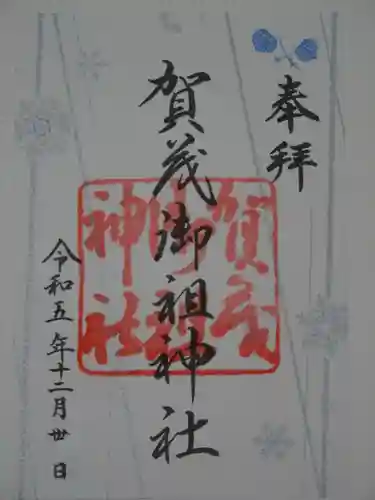 奉拝
賀茂御祖神社
令和五年十二月丗日
賀茂
御祖
神社